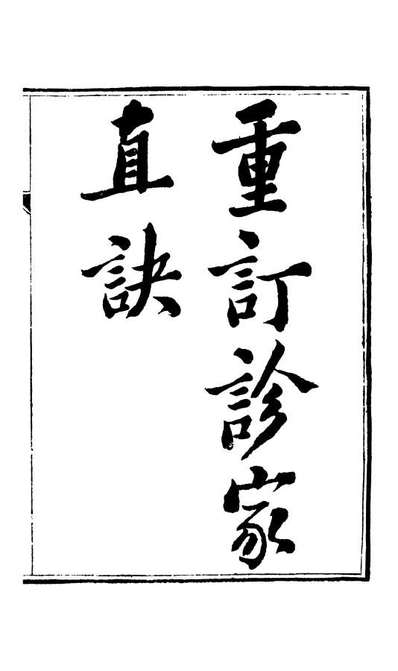 重訂診家
直訣